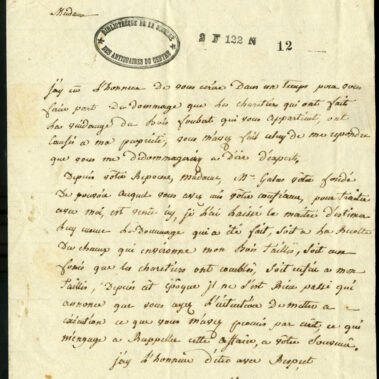 Madame
BIBLIOTHEQUE DE LA SOCIETE
DES ANTIQUAIRES DU CENTRE
2 F 122 N
12
j'ay eu l'honneur de vous ecrire Dans un temps pour vous
faire part du dommage que les charetier qui ont fait
las vuidange du bois qui vous appartient, ont
causés a ma propriété, vous m'avez fait celuy de me repondre
que vous me dedomageriez a Dire d'experts.
Depuis votre Reponse, madame, Mr votre fondé
De pouvoir auquel vous avez mis votre confiance, pour traiter
avec moi, est venu icy, je l'ai laissé le maitre
du Dommage qui a été fait, soit a la Recolte
Du champ qui environne mon Bois taillis, soit aux
que les charetiers ont comblés, soit enfin a mon
taillis, Depuis cet Epoque il ne s'est Rien passé qui
annonce que vous ayez l'intention de mettre a
execution ce que vous m'avez promis par ecrit, ce qui
m'engage a Rappeller cette affaire, a votre Souvenir.
j'ay l'honneur d'être avec Respect